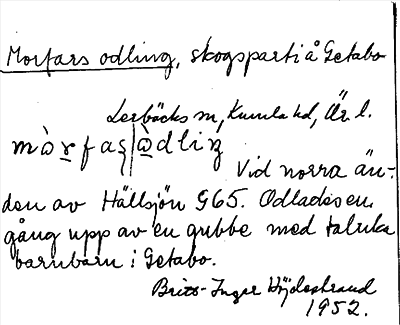 Morfars odling, skogsparti å Getabo
Lerbäcks sn, Kumla hd, Är l.
mò̱rfaʂ|ò̱dliŋ
Vid norra än-
den av Hällsjön 965. Odlades en
gång upp av en gubbe med talrika
barnbarn i Getabo.
Britt-Inger
1952.